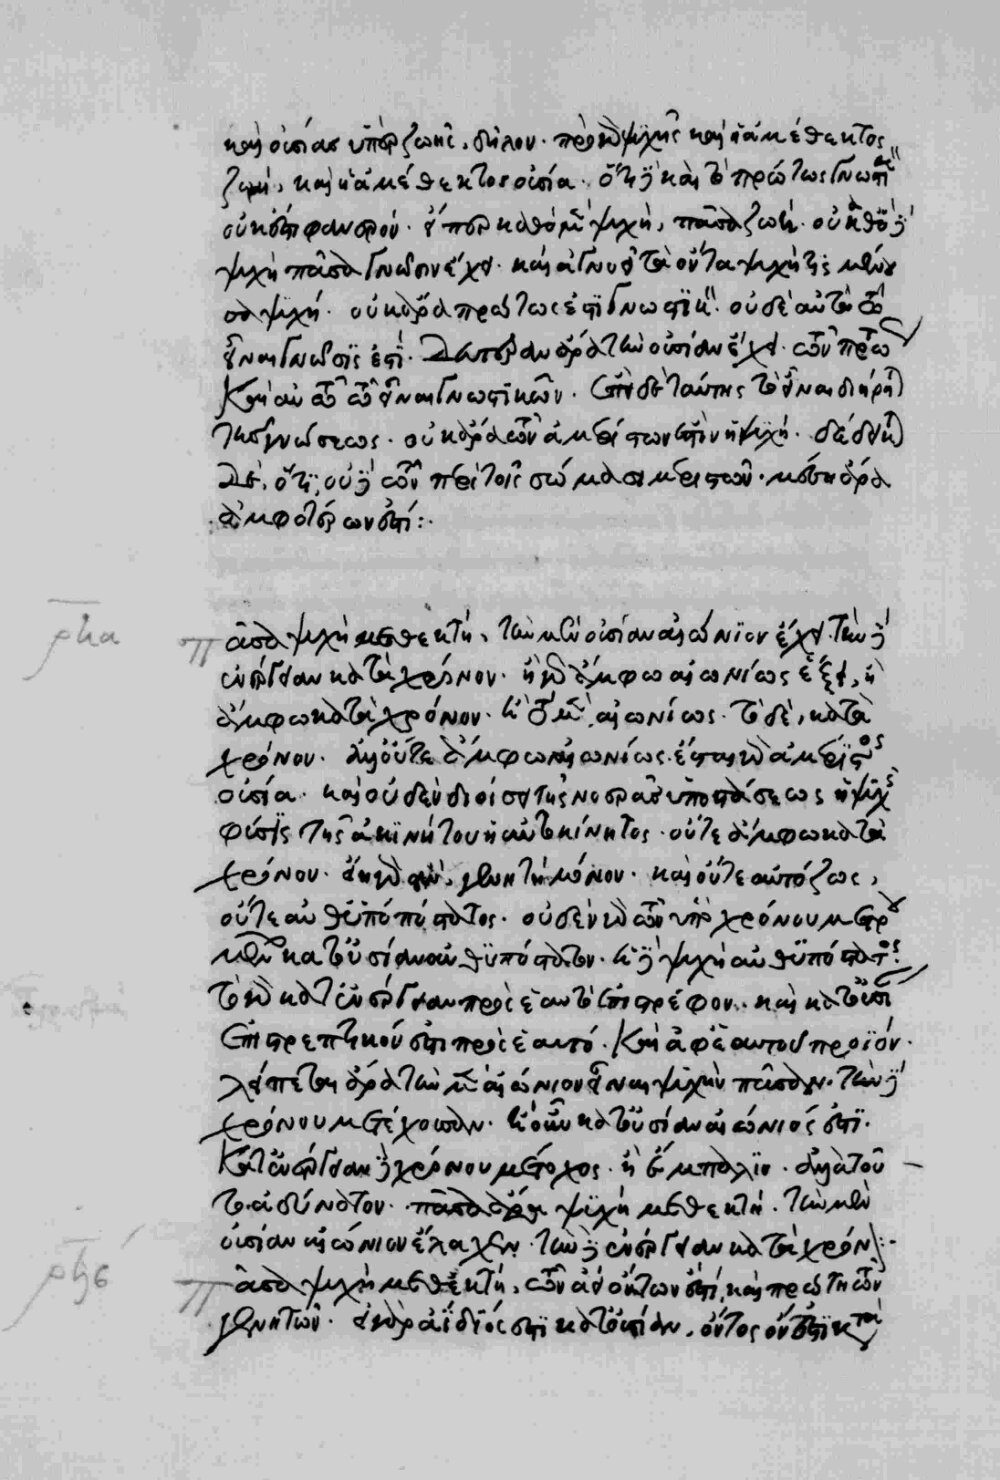 καὶ οὐσίας ὑπὲρ ζωῆς, δῆλον· πρὸ γὰρ ψυχῆς καὶ ἡ ἀμέθεκτος
ζωή, καὶ ἡ ἀμέθεκτος οὐσία. ὅτι δὲ καὶ τὸ πρώτως γνωστικὸν
οὐκ ἔστι φανερόν. εἴπερ καθὸ μὲν ψυχή, πᾶσα ζωή. οὐ καθὸ δὲ
ψυχὴ πᾶσα γνῶσιν ἔχει. καὶ ἀγνοεῖ τὰ ὄντα ψυχή τις μένου
σα ψυχή. οὐκ ἄρα πρώτως ἐστὶ γνωστική. οὐδὲ αὐτῷ τῷ
εἶναι γνῶσίς ἐστι. δευτέραν ἄρα τὴν οὐσίαν ἔχει τῶν πρώτως
καὶ αὐτῷ τῷ εἶναι γνωστικῶν. ἐπεὶ δὲ ταύτης τὸ εἶναι διῄρηται
τῆς γνώσεως. οὐκ ἄρα τῶν ἀμερίστων ἐστὶν ἡ ψυχή. δέδεικται
δὲ, ὅτι οὐδὲ τῶν περὶ τοῖς σώμασι μεριστῶν. μέση ἄρα
ἀμφοτέρων ἐστί:.
ρϟα πᾶσα ψυχὴ μεθεκτή, τὴν μὲν οὐσίαν αἰώνιον ἔχει. τὴν δὲ
ἐνέργειαν κατὰ χρόνον. ἢ γὰρ ἄμφω αἰωνίως ἕξει, ἢ
ἄμφω κατὰ χρόνον. ἢ τὸ μὲν, αἰωνίως. τὸ δὲ, κατὰ
χρόνον. ἀλλ' οὔτε ἄμφω αἰωνίως. ἔσται γὰρ ἀμέριστος
οὐσία. καὶ οὐδὲν διοίσει τῆς νοερᾶς ὑποστάσεως ἡ ψυχῆς
φύσις τῆς ἀκινήτου ἡ αὐτοκίνητος. οὔτε ἄμφω κατὰ
χρόνον. εἴη γὰρ ἂν, γενητὴ μόνον. καὶ οὔτε αὐτόζως,
οὔτε αὐθυπόστατος. οὐδὲν γὰρ τῶν ὑπὸ χρόνου μετρου
μένων κατ' οὐσίαν αὐθυπόστατον. ἡ δὲ ψυχὴ αὐθυπόστατος.
τὸ γὰρ κατ' ἐνέργειαν πρὸς ἑαυτὸ ἐπιστρέφον. καὶ κατ' οὐσίαν
ἐπιστρεπτικόν ἐστι πρὸς ἑαυτό. καὶ ἀφ' ἑαυτοῦ προϊόν.
λείπεται ἄρα τῇ μὲν αἰώνιον εἶναι ψυχὴν πᾶσαν. τῇ δὲ
χρόνου μετέχουσαν. ἢ οὖν κατ' οὐσίαν αἰώνιός ἐστι.
κατ' ἐνέργειαν δὲ χρόνου μέτοχος. ἢ ἔμπαλιν. ἀλλὰ τοῦ
το ἀδύνατον. πᾶσα ἄρα ψυχὴ μεθεκτή. τὴν μὲν
οὐσίαν αἰώνιον ἔλαχεν. τὴν δὲ ἐνέργειαν κατὰ χρόνον:·
ρϟβ πᾶσα ψυχὴ μεθεκτή, τῶν ἀεὶ ὄντων ἐστί, καὶ πρώτη τῶν
γενητῶν. εἰ γὰρ ἀΐδιός ἐστι κατ' οὐσίαν, ὄντως ὄν ἐστι κατὰ